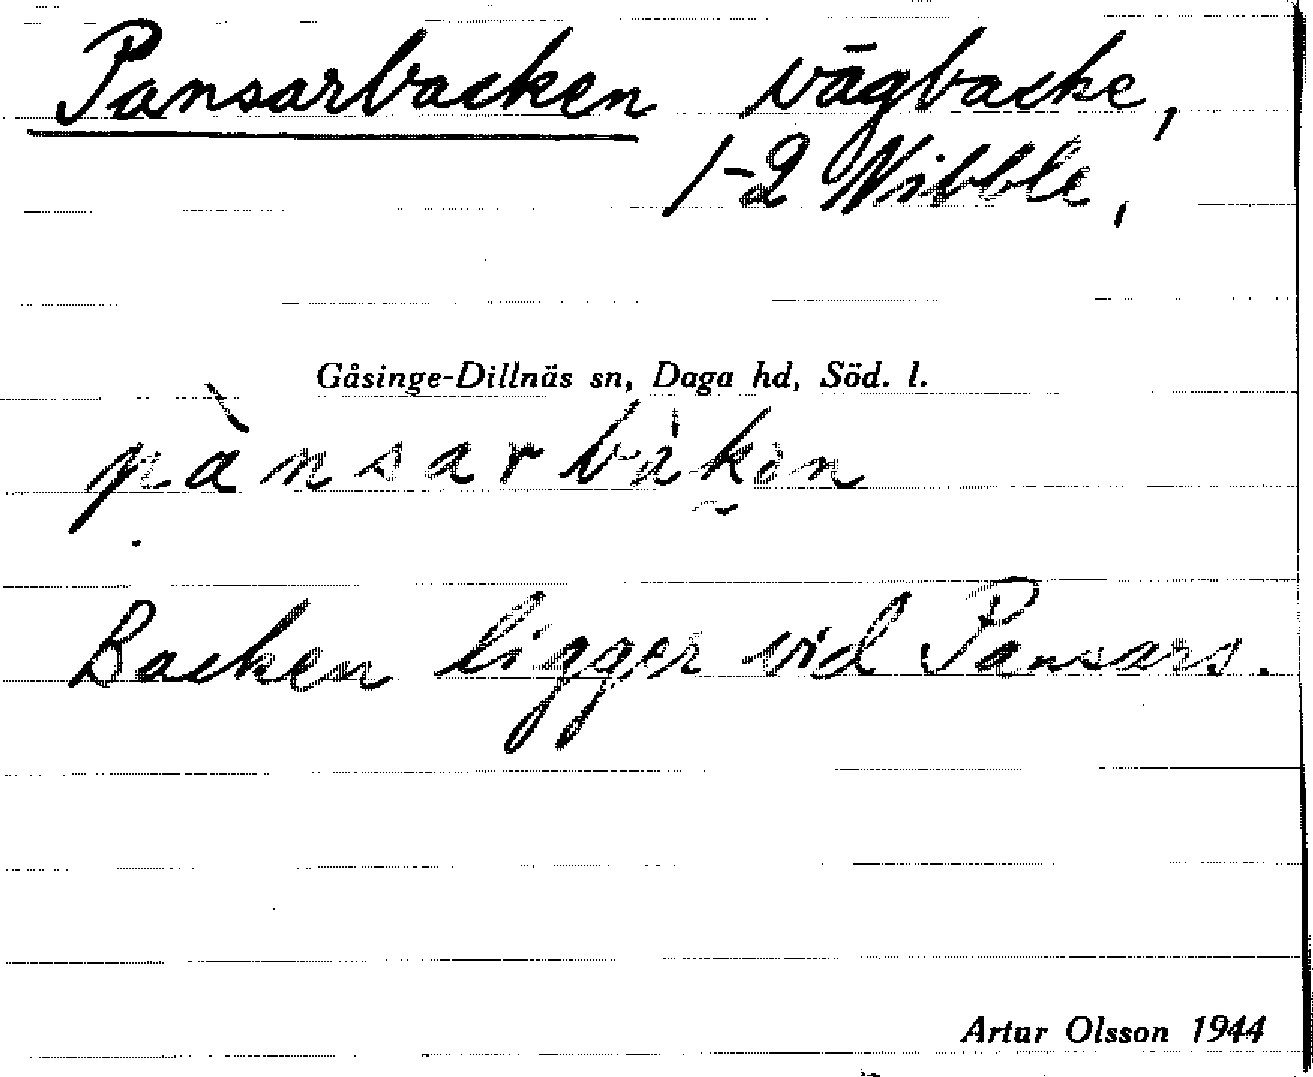 Pansarbacken vägbacke,
1-2 Nibble,
Gåsinge-Dillnäs sn, Daga hd, Söd. l.
pànsarbàkən
Backen ligger vid Pansars.
Artur Olsson 1944